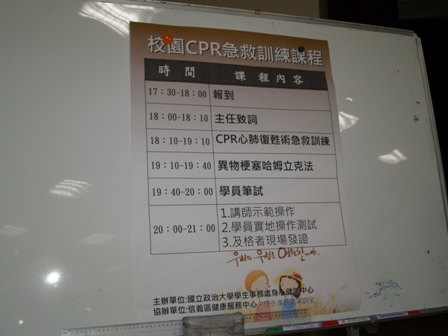 校園CPR急救訓練課程
時 間 課 程 內 容
17：30-18：00 報到
18：00-18：10 主任致詞
18：10-19：10 CPR心肺復甦術急救訓練
19：10-19：40 異物梗塞哈姆立克法
19：40-20：00 學員筆試
20：00-21：00 1.講師示範操作
2.學員實地操作測試
3.及格者現場發證
主辦單位:國立政治大學學生事務處身心健康中心
協辦單位:信義區健康服務中心